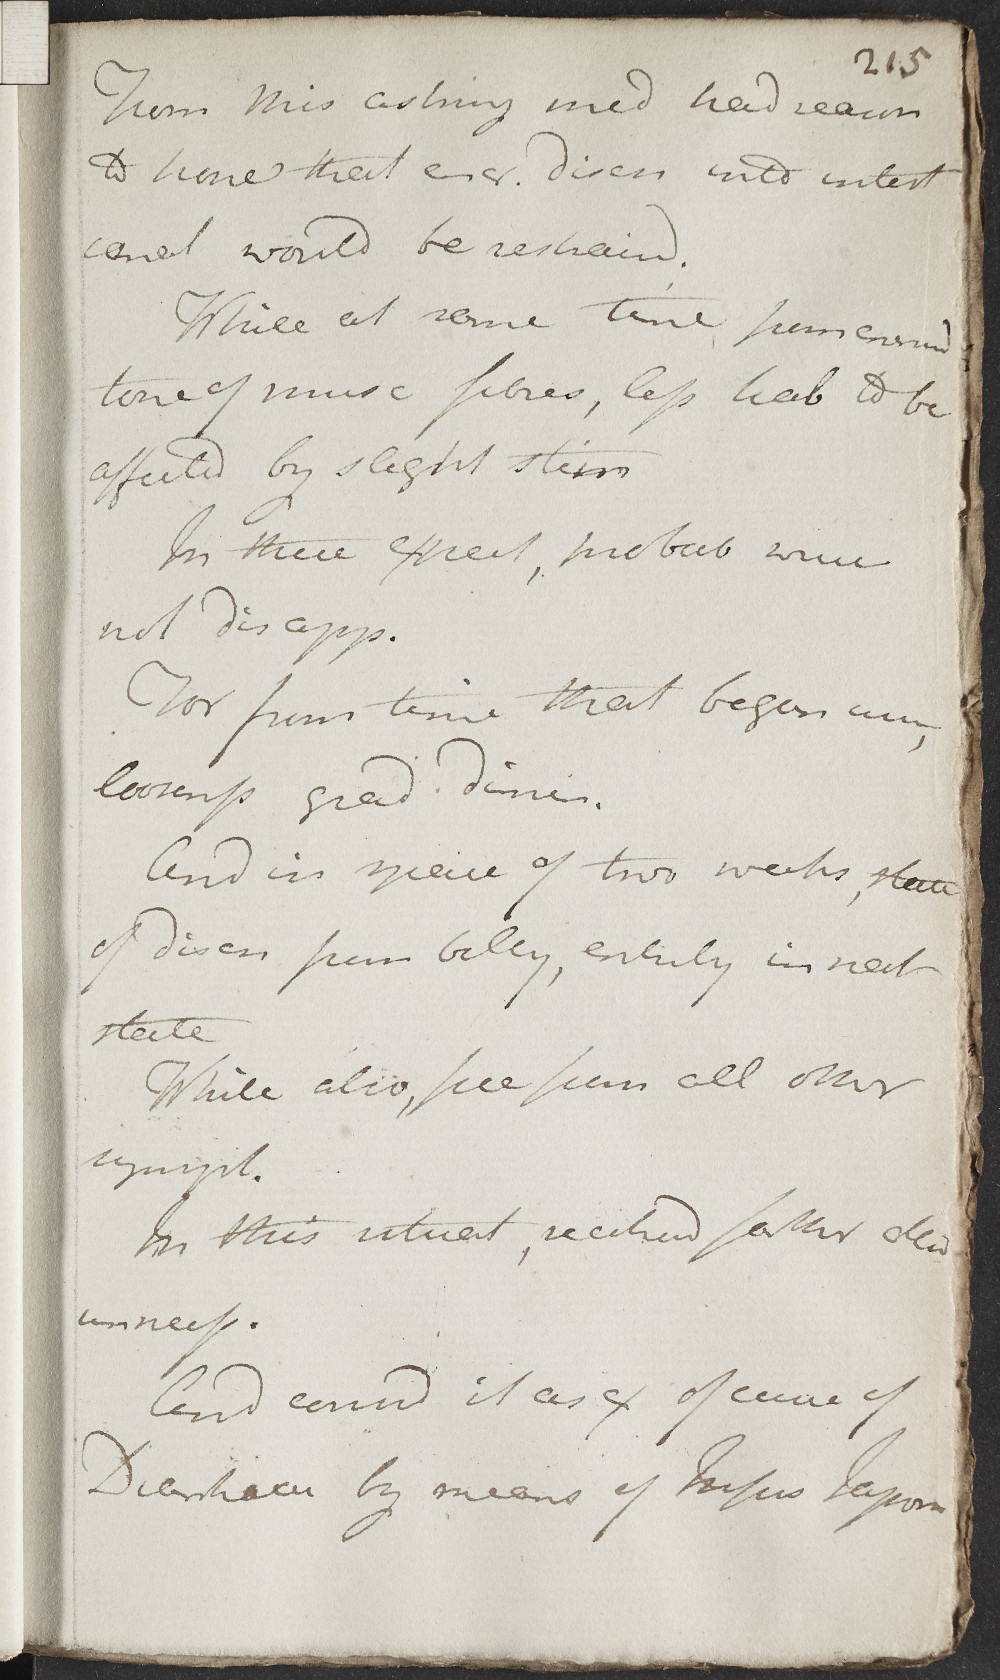 215
From this astring med had reason
to hope that exer. disch into intest
canal would be restraind.
While at same time, from increasd
tone of musc fibres, less liab to be
affected by slight stim
In these expect, probab were
not disapp.
For from time that began use,
looseness grad. dimin.
And in space of two weeks, state
of disch from belly, entirely in nat
state
While also, free from all other
sympt.
In this situat, reckond farther attend
unness.
And consid it as ex of cure of
Diarrhoea by means of Infus Japon